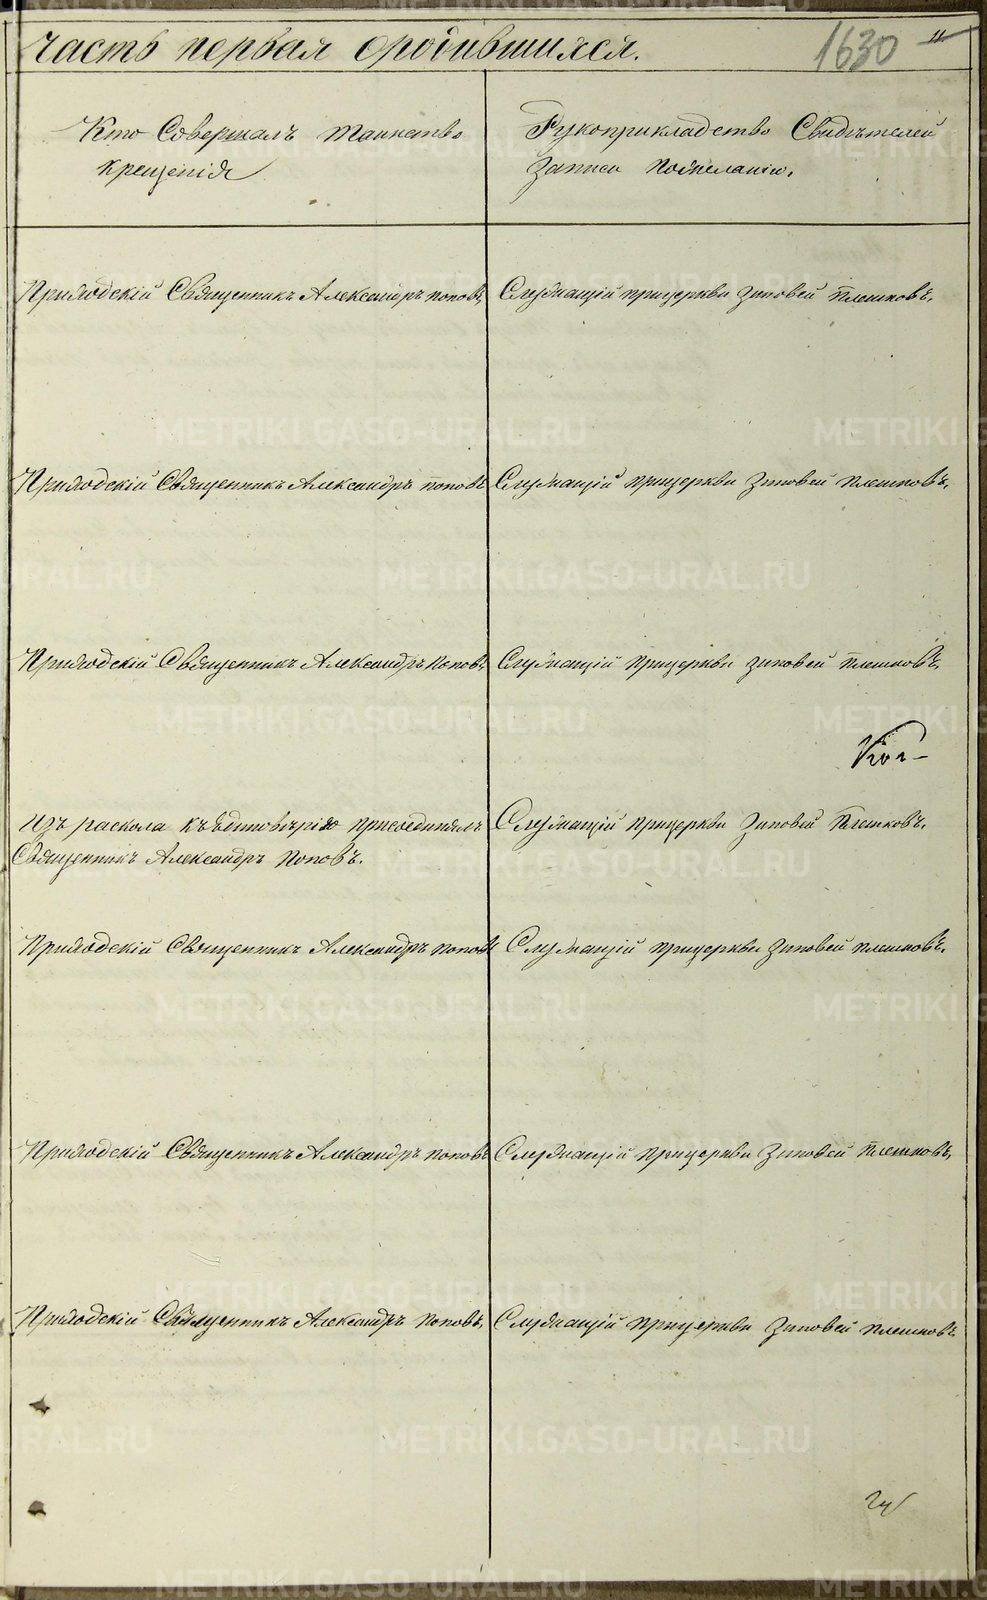 часть первая ородившихся.
1630
11
Кто Совершалъ таинство
крещенія
Рукоприкладство Свидѣтелей
записи пожеланію.
Приходскій Священникъ Александръ поповъ,
Служащій прицеркви Зиновей Плешковъ.
Приходскій Священникъ Александръ поповъ
Служащій прицеркви Зиновей Плешковъ.
Приходскій Священникъ Александръ Поповъ,
Служащій прицеркви зиновей Плешковъ,
Изъ раскола къ Единовѣрію присоединялъ
Священникъ Александръ Поповъ.
Служащій прицеркви Зиновей Плешковъ.
Приходскій Священникъ Александръ поповъ
Служащій прицеркви Зиновей плешковъ.
Приходскій Священникъ Александръ поповъ
Служащій прицеркви Зиновей Плешковъ,
Приходскій Священникъ Александръ Поповъ,
Служащій прицеркви Зиновей Плешковъ
METRIKI.GASO-URAL.RU